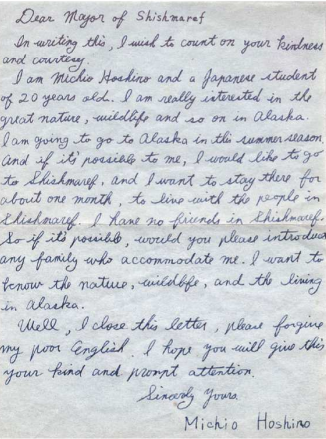 Dear Mayor of Shishmaref
In writing this, I wish to count on your kindness
and courtesy.
I am Michio Hoshino and a Japanese student
of 20 years old. I am really interested in the
great nature, wildlife and so on in Alaska.
I am going to go to Alaska in this summer season.
And if it's possible to me, I would like to go
to Shishmaref, and I want to stay there for
about one month, to live with the people in
Shishmaref. I have no friends in Shishmaref.
So if it's possible, would you please introduce
any family who accommodate me. I want to
know the nature, wildlife, and the living
in Alaska.
Well, I close this letter, please forgive
my poor English. I hope you will give this
your kind and prompt attention.
Sincerely Yours
Michio Hoshino